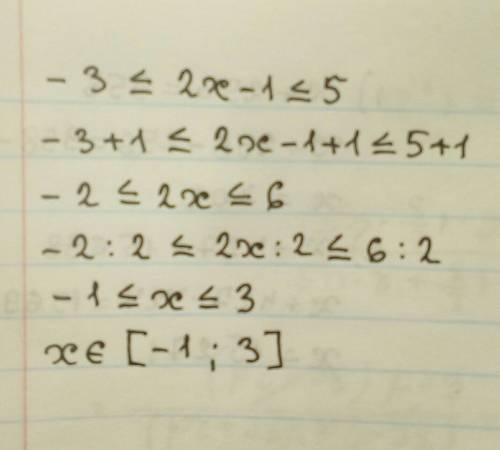 - 3 ≤ 2x - 1 ≤ 5
- 3 + 1 ≤ 2x - 1 + 1 ≤ 5 + 1
- 2 ≤ 2x ≤ 6
- 2 : 2 ≤ 2x : 2 ≤ 6 : 2
- 1 ≤ x ≤ 3
x ∈ [-1 ; 3]